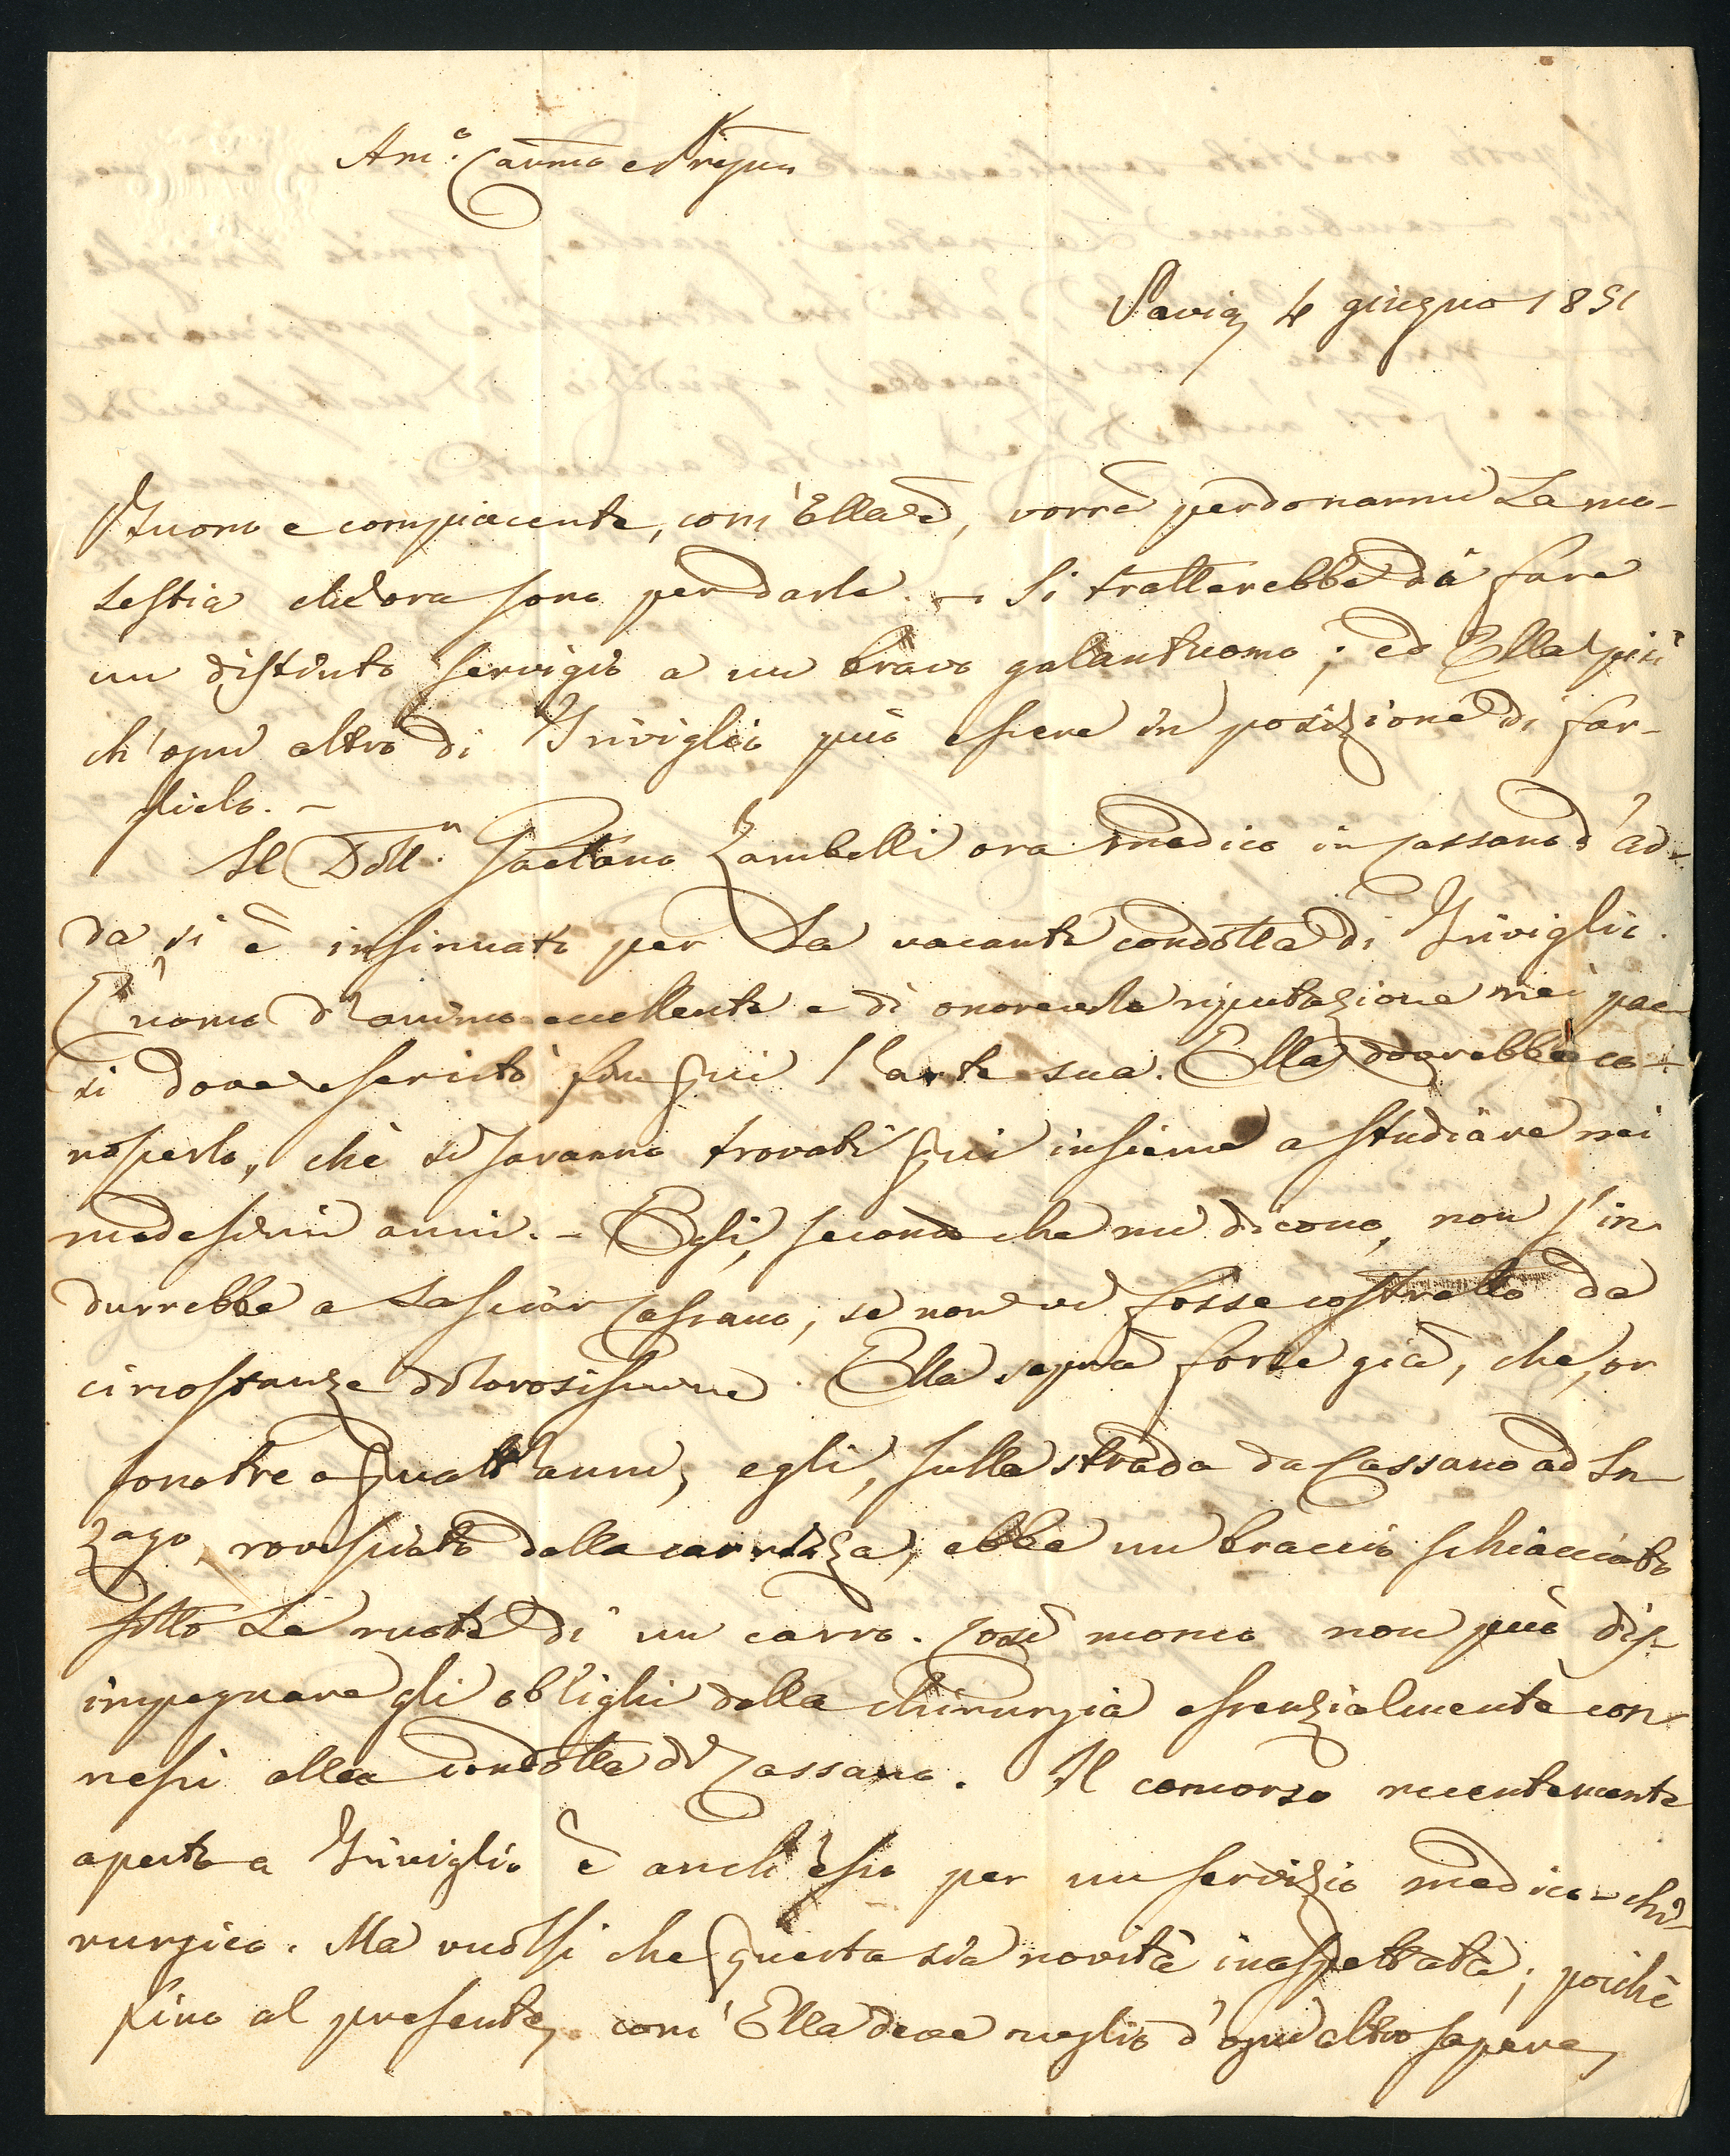 Am.º Carmo e Pregmo
Pavia, 4 giugno 1851
Buono e compiacente, com'Ella è, vorrà perdonarmi la mo-
lestia che ora sono per darle. — Si tratterebbe di fare
un distinto servigio a un bravo galantuomo; ed Ella più
ch'ogni altro di Triviglio può essere in posizione di far-
glielo. —
Il Dott.r Gaetano Zambelli ora medico in Cassano d'Ad-
da si è insinuato per la vacante condotta di Triviglio.
È uomo d'animo eccellente e di onorevole riputazione nei pae-
si dove esercitò fin qui l'arte sua. Ella dovrebbe co-
noscerlo, chè si saranno trovati qui insieme a studiare nei
medesimi anni. — Egli, secondo che mi dicono, non s'in-
durrebbe a lasciar Cassano, se non vi fosse costretto da
circostanze dolorosissime. Ella saprà forse già, che, or
sono tre o quatt'anni, egli, sulla strada da Cassano ad In-
zago, rovesciato dalla carrozza, ebbe un braccio schiacciato
sotto le ruote di un carro. Così monco non può dis-
impegnare gli obblighi della chirurgia essenzialmente con-
nessi alla condotta di Cassano. Il concorso recentemente
aperto a Triviglio è anch'esso per un servizio medico-chi-
rurgico. Ma vuolsi che questa sia novità inaspettata; poichè
fino al presente, com'Ella deve meglio d'ogni altro sapere,